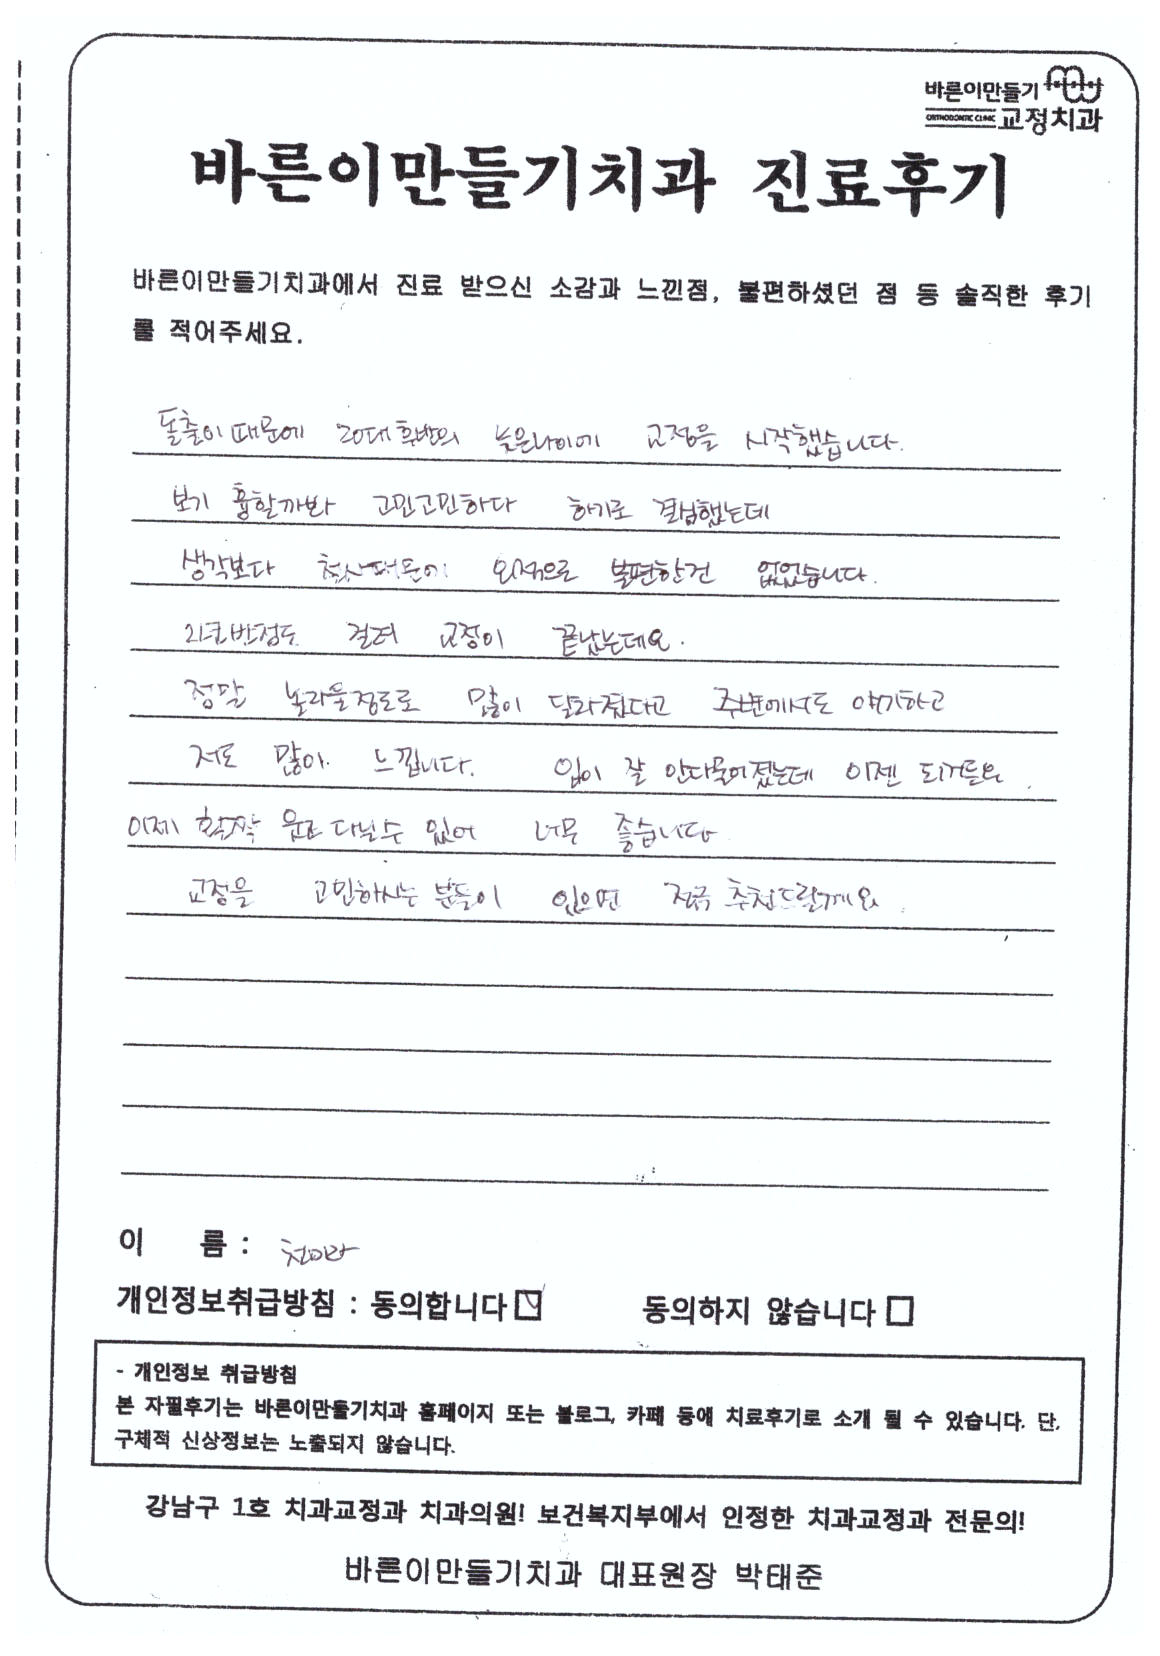 바른이만들기
ORTHODONTIC CLINIC 교정치과
바른이만들기치과 진료후기
바른이만들기치과에서 진료 받으신 소감과 느낀점, 불편하셨던 점 등 솔직한 후기
를 적어주세요.
돌출이때문에 20대후반의 늦은나이에 교정을 시작했습니다.
보기 흉할까봐 고민고민하다 하기로 결심했는데
생각보다 외적으로 불편한건 없었습니다.
2년반정도 걸려 교정이 끝났는데요.
정말 놀라울정도로 많이 달라졌다고 주변에서도 얘기하고
저도 많이 느낍니다. 입이 잘 안다물어졌는데 이젠 되거든요.
이제 활짝 웃고 다닐수 있어 너무 좋습니다
교정을 고민하시는 분들이 있으면 적극 추천드릴게요.
이 름 : 천미라
개인정보취급방침 : 동의합니다 동의하지 않습니다
- 개인정보 취급방침
본 자필후기는 바른이만들기치과 홈페이지 또는 블로그, 카페 등에 치료후기로 소개 될 수 있습니다. 단,
구체적 신상정보는 노출되지 않습니다.
강남구 1호 치과교정과 치과의원! 보건복지부에서 인정한 치과교정과 전문의!
바른이만들기치과 대표원장 박태준